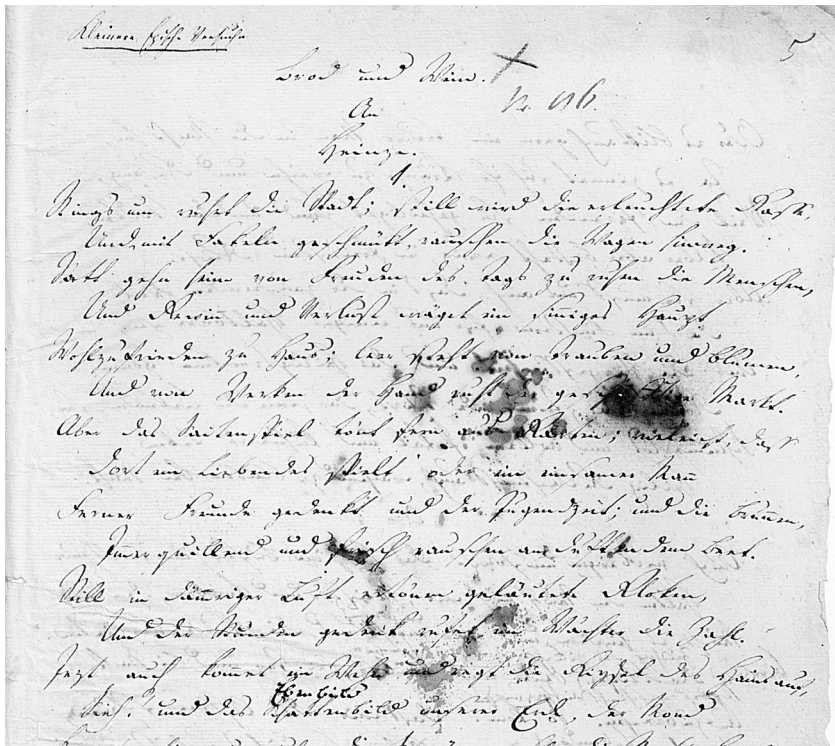 Kleinere
5
Brod und Wein.
No. 6
An
Heinze.
1.
Rings um ruhet die Stadt; still wird die erleuchtete Gasse,
Und, mit Fakeln geschmükt, rauschen die Wagen hinweg.
Satt gehn heim von Freuden des Tags zu ruhen die Menschen,
Und Gewinn und Verlust wäget ein sinniges Haupt
Wohlzufrieden zu Haus; leer steht von Trauben und Blumen,
Und von Werken der Hand ruht der geschäfftige Markt.
Aber das Saitenspiel tönt fern aus Gärten; vieleicht, daß
Dort ein Liebendes spielt oder ein einsamer Mann
Ferner Freunde gedenkt und der Jugendzeit; und die Brunnen,
Immerquillend und frisch rauschen an duftendem Beet.
Still in dämriger Luft ertönen geläutete Gloken,
Und der Stunden gedenk rufet ein Wächter die Zahl.
Jezt auch kommet ein Wehn und regt die Gipfel des Hains auf,
Ebenbild
Sieh! und das Schattenbild unserer Erde, der Mond